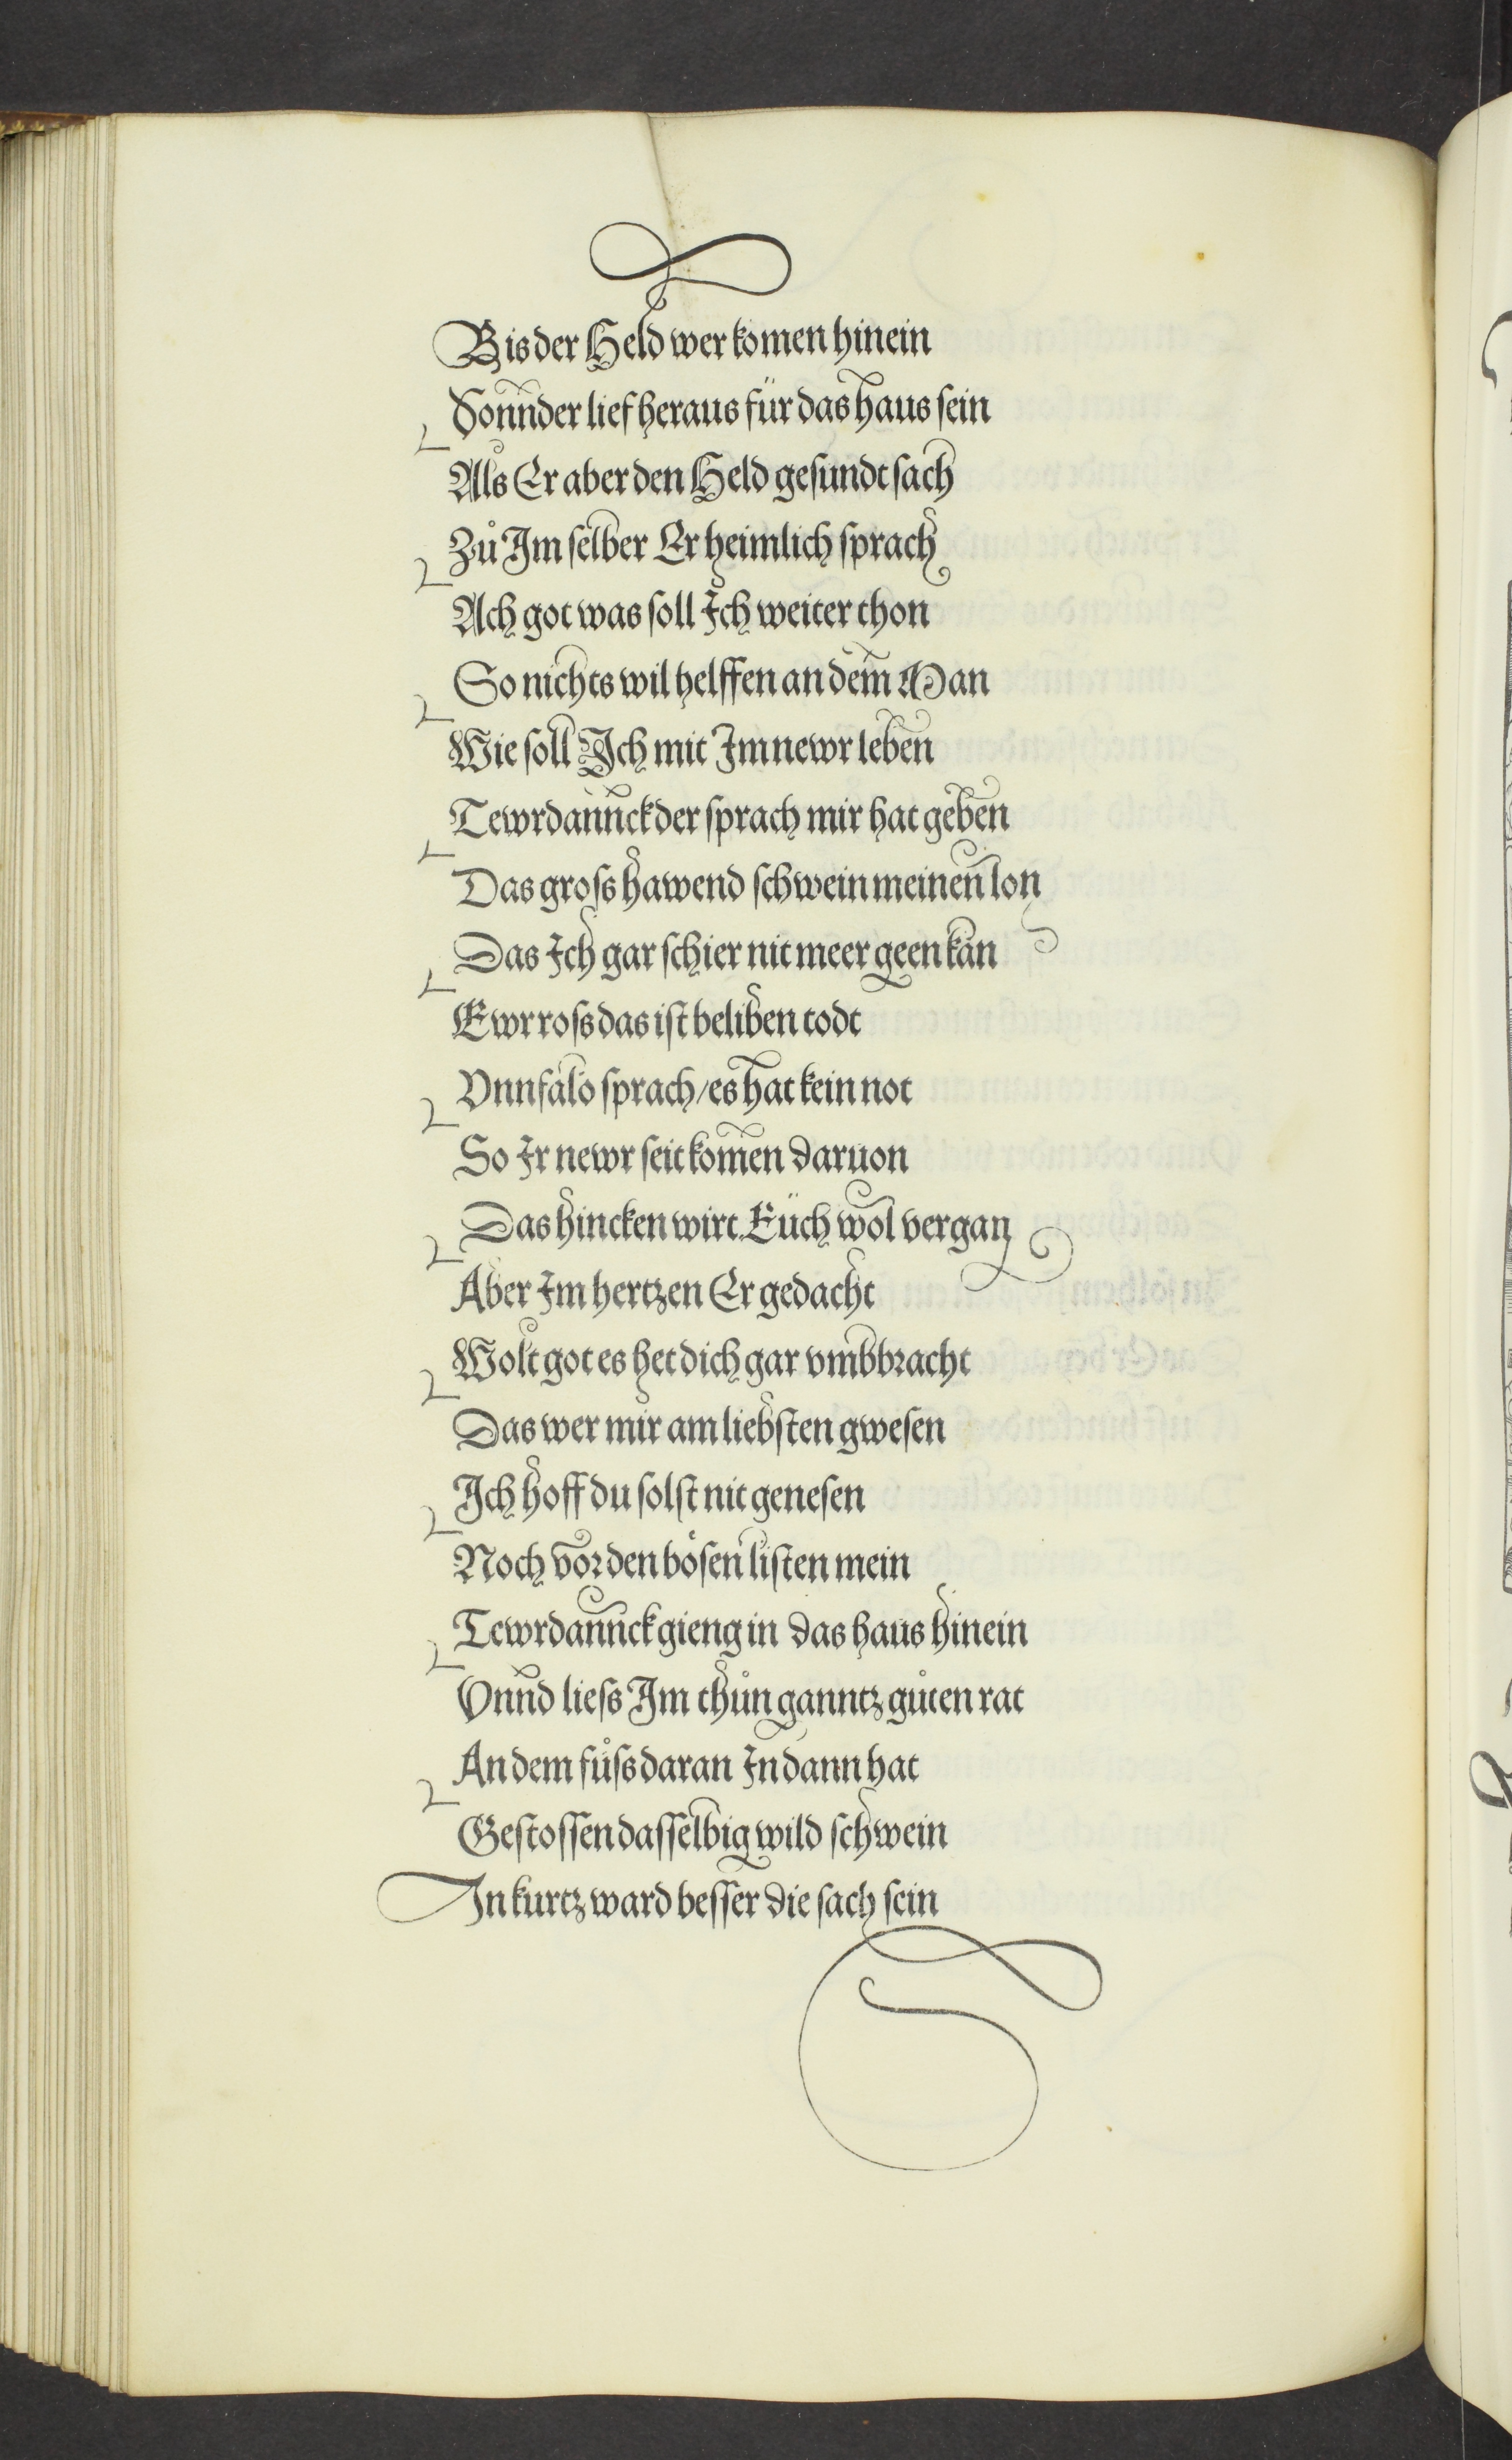 Bis der Held wer komen hinein
Sonnder lief heraus für das haus sein
Als Er aber den Held gesundt sach
Zů Im selber Er heimlich sprach
Ach got was soll Ich weiter thon
So nichts wil helffen an dem Man
Wie soll Ich mit Im newr leben
Tewrdannck der sprach mir hat geben
Das gross hawend schwein meinen lon
Das Ich gar schier nit meer geen kan
Ewr ross das ist beliben todt
Vnnfalo sprach/es hat kein not
So Ir newr seit komen daruon
Das hincken wirt Eüch wol vergan
Aber Im hertzen Er gedacht
Wolt got es het dich gar vmbbracht
Das wer mir am liebsten gwesen
Ich hoff du solst nit genesen
Noch vor den bösen listen mein
Tewrdannck gieng in das haus hinein
Vnnd liess Im thůn ganntz gůten rat
An dem fůss daran In dann hat
Gestossen dasselbig wild schwein
In kurtz ward besser die sach sein